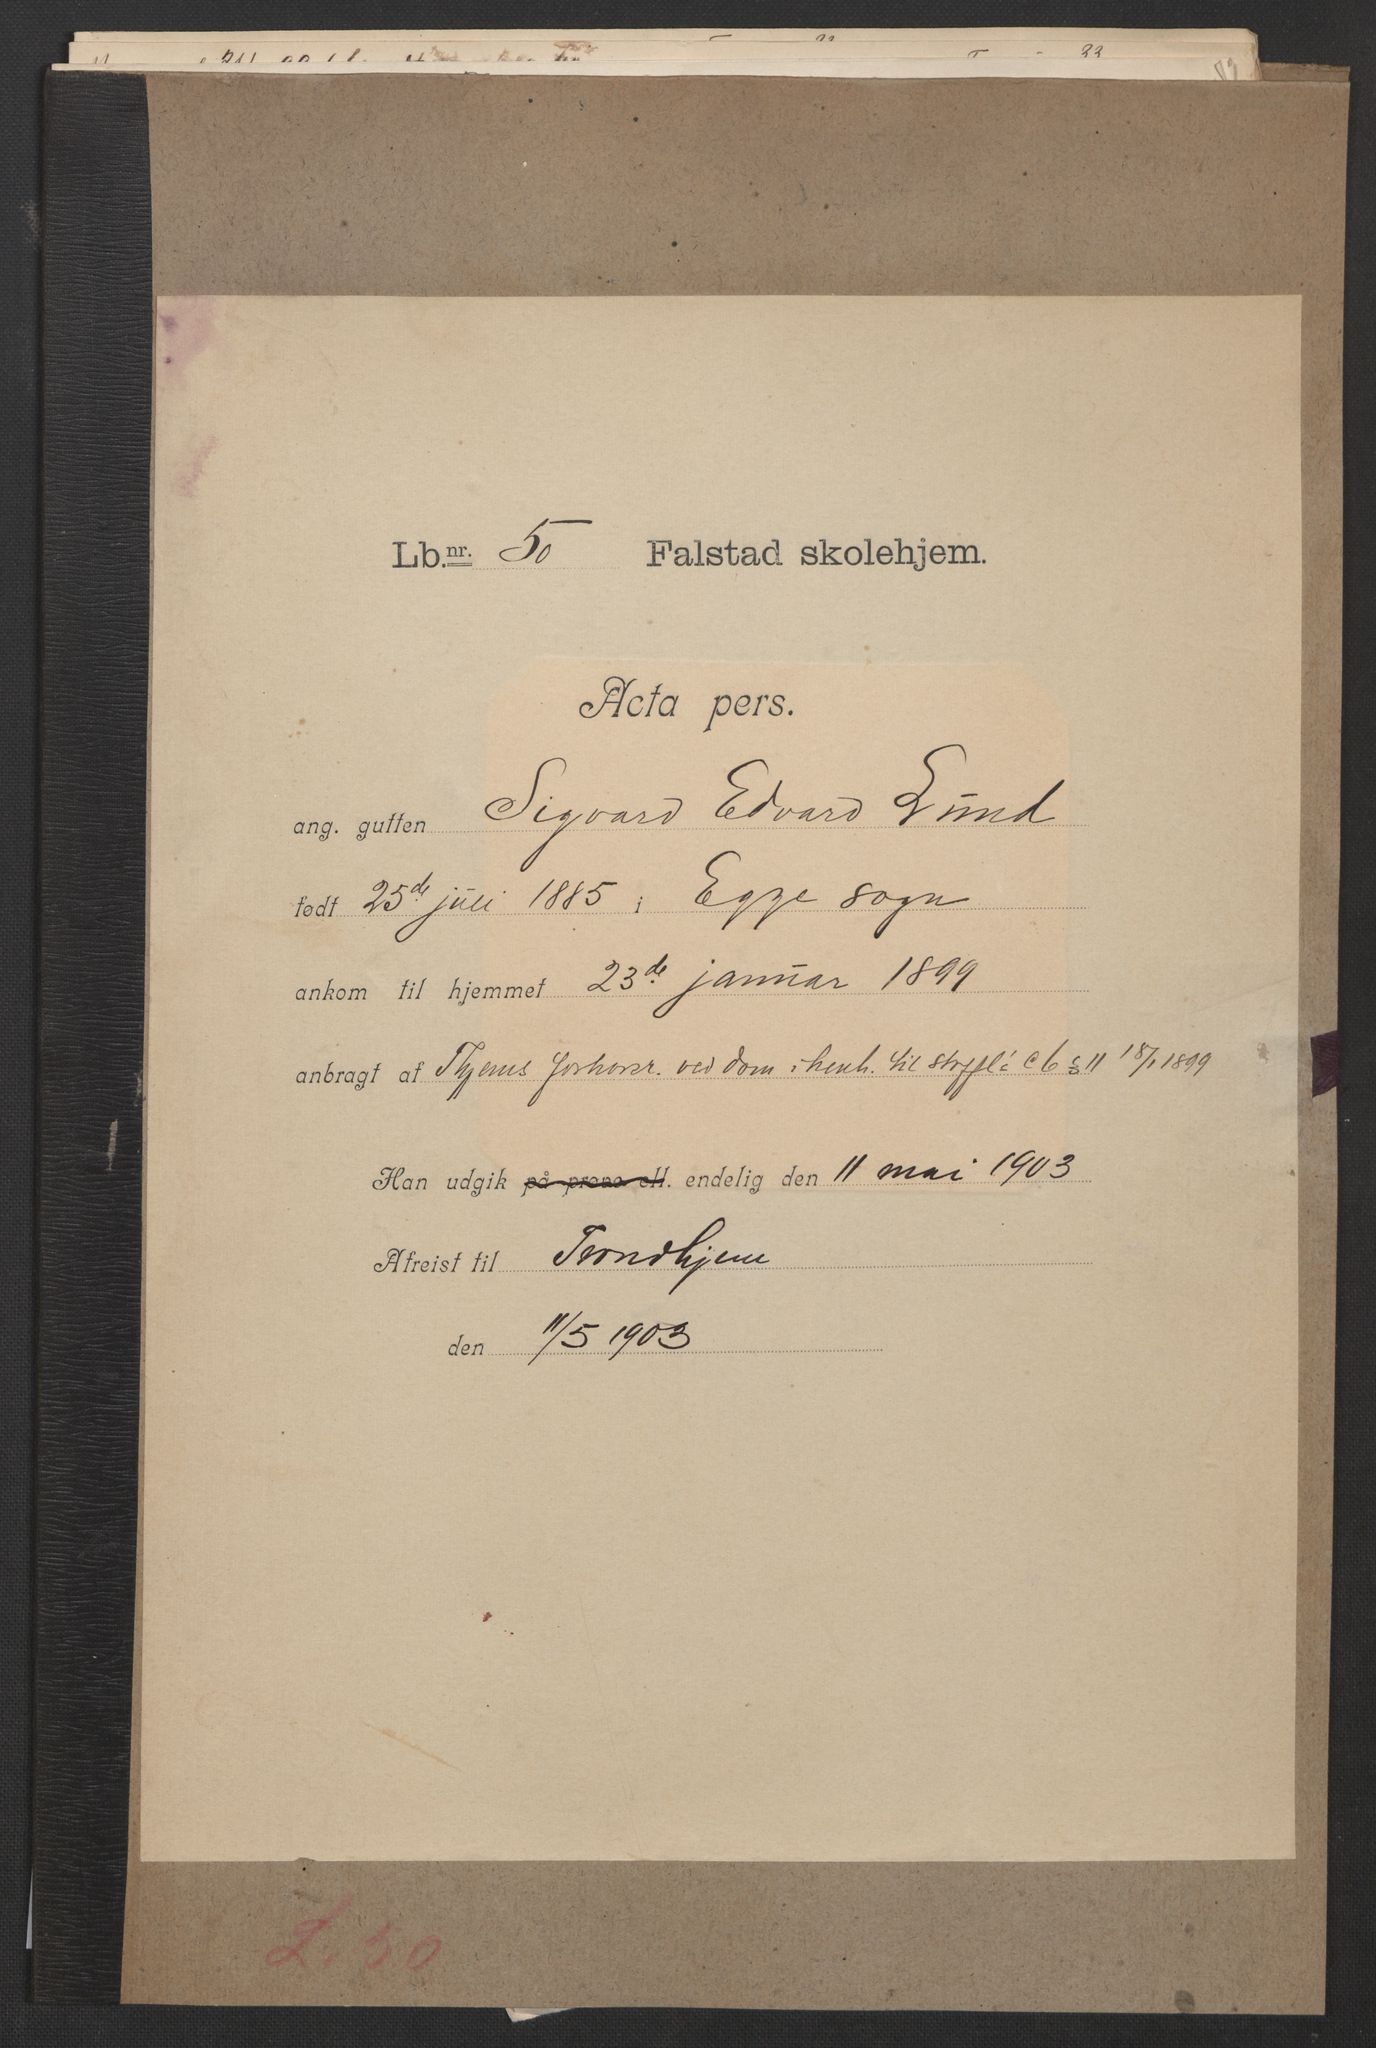 Lb.nr. 50 Falstad skolehjem.
Acta pers.
ang. gutten Sigvard Edvard Lund
født 25de juli 1885 i Egge sogn
ankom til hjemmet 23de januar 1899
anbragt af Thjems forhørsr. ved dom i henh. til strffl. c 6 § 11 18/1 1899
Han udgik på prøve ell. endelig den 11 mai 1903
Afreist til Trondhjem
den 11/5 1903
L. 50